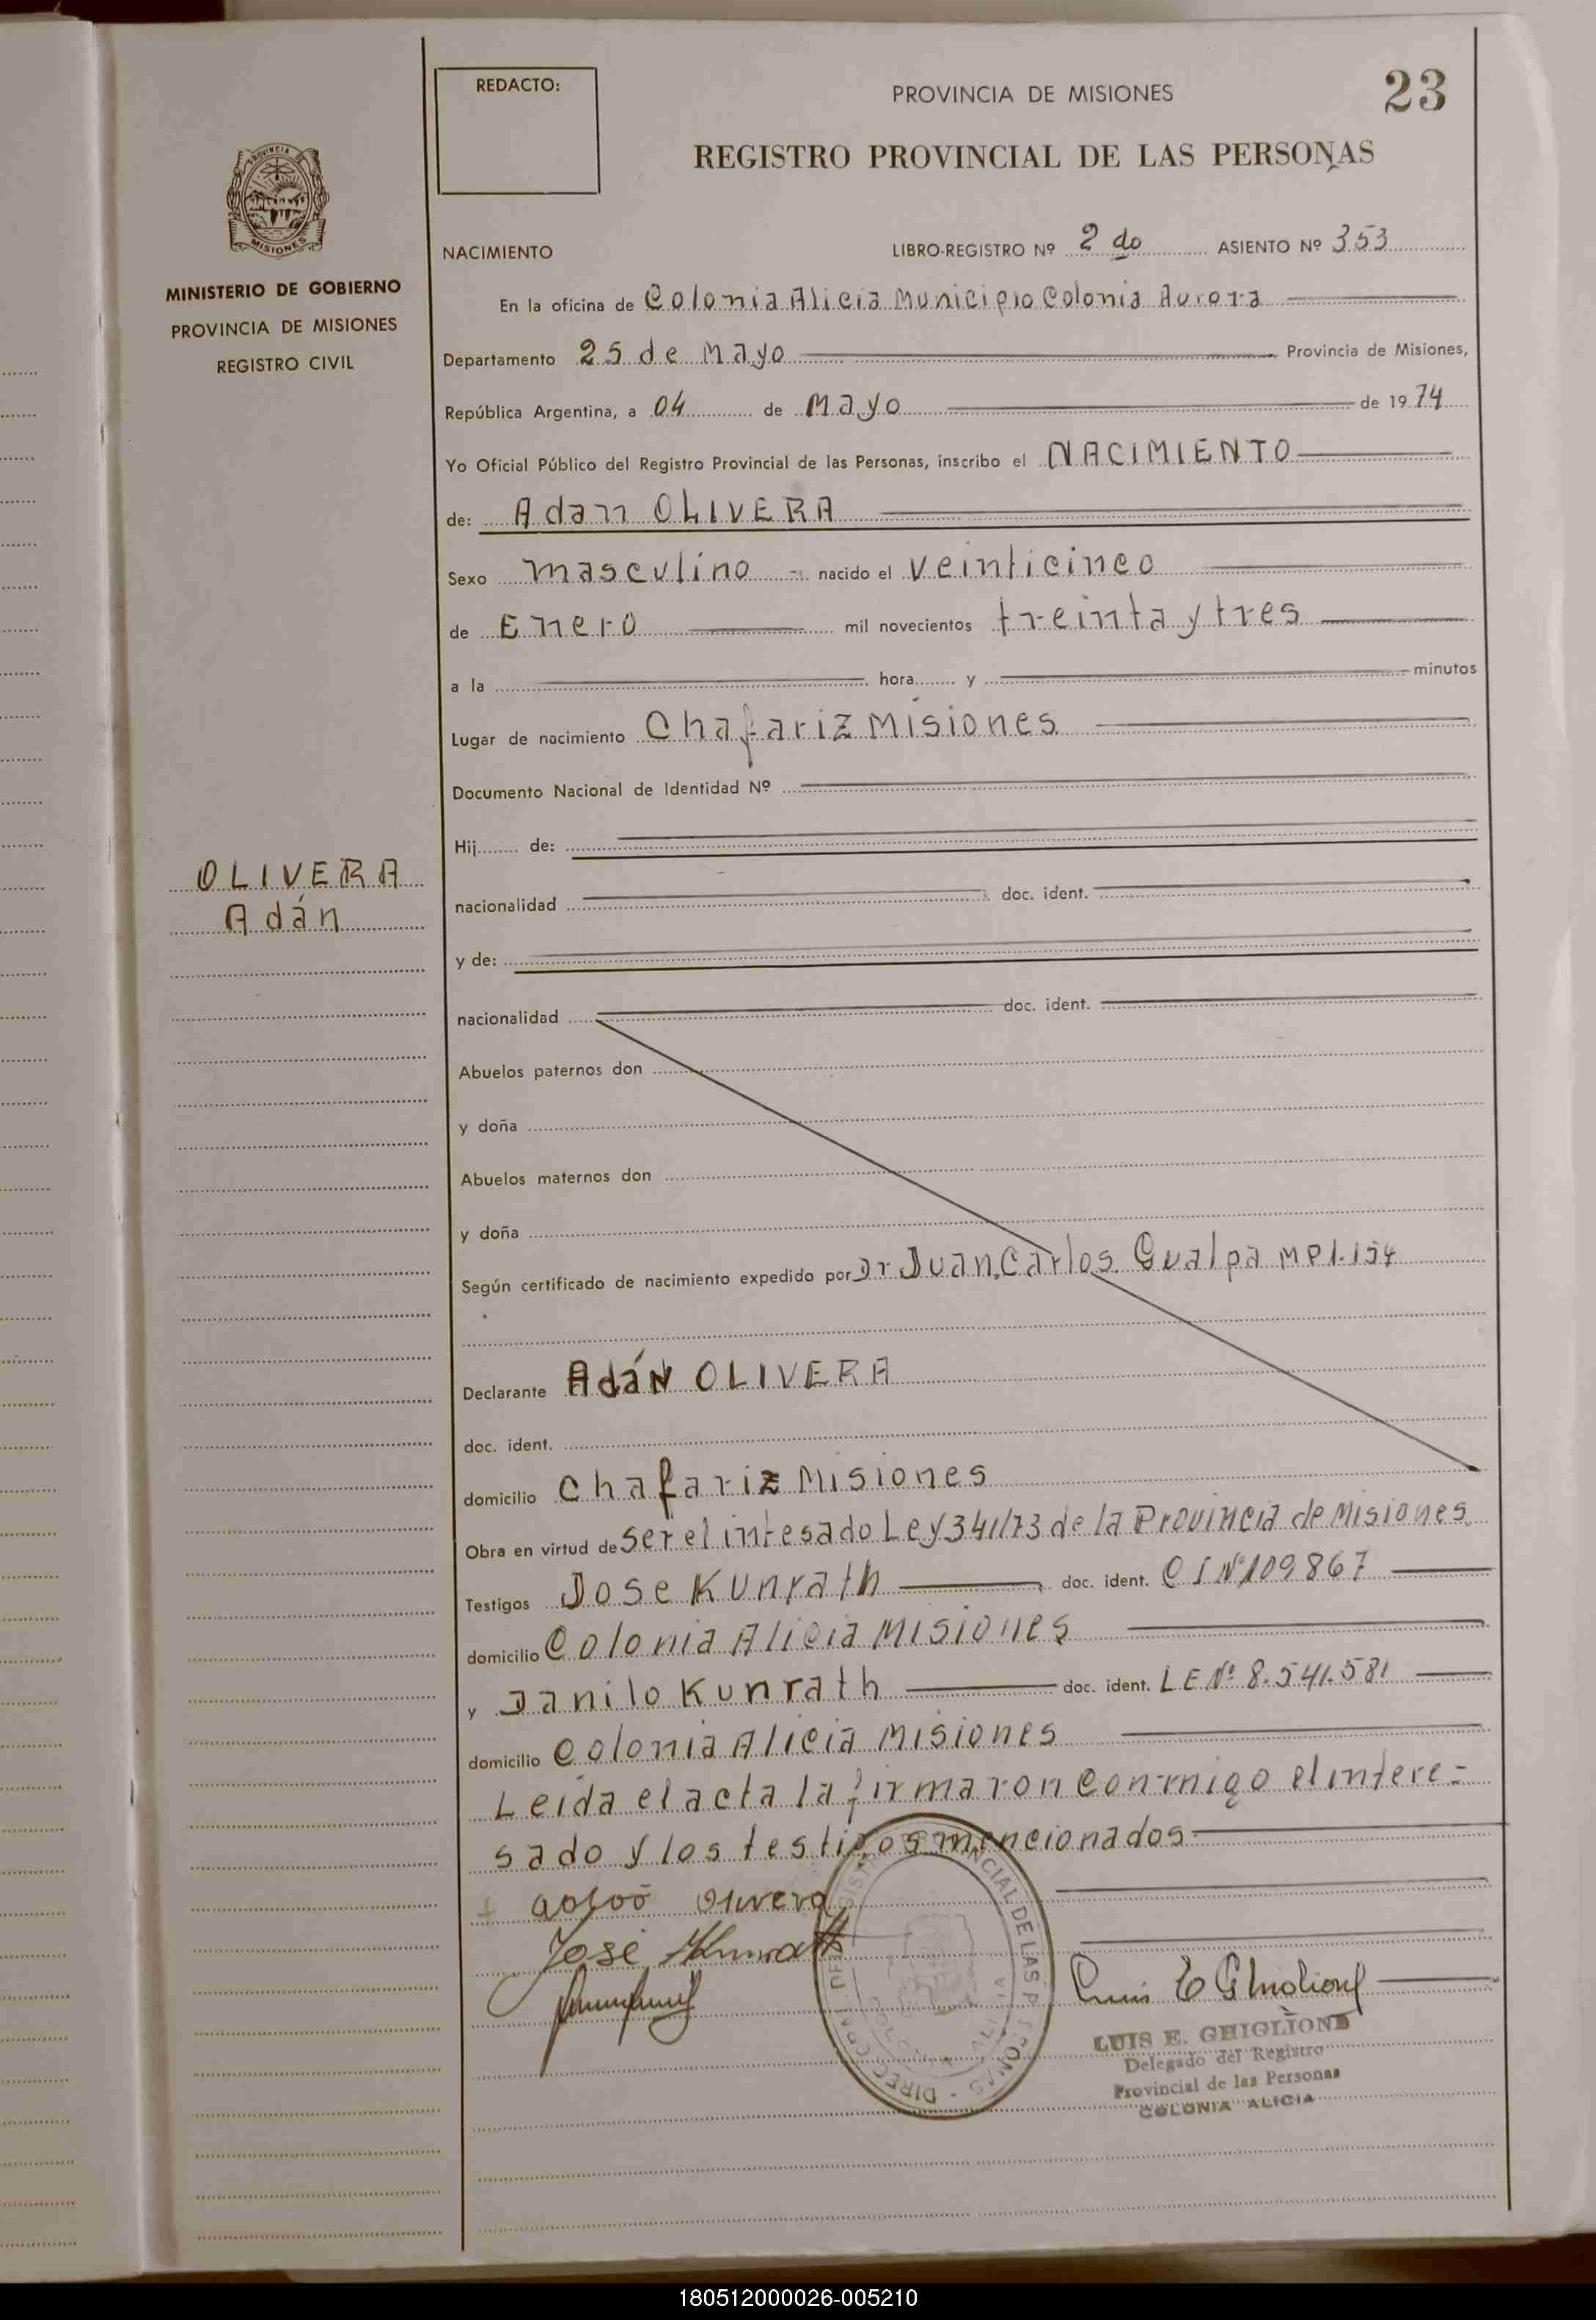 REDACTO:
PROVINCIA DE MISIONES
23
REGISTRO PROVINCIAL DE LAS PERSONAS
PROVINCIA DE
MISIONES
MINISTERIO DE GOBIERNO
PROVINCIA DE MISIONES
REGISTRO CIVIL
NACIMIENTO LIBRO-REGISTRO Nº 2 do ASIENTO Nº 353
En la oficina de Colonia Alicia Municipio Colonia Aurora
Departamento 25 de Mayo Provincia de Misiones,
República Argentina, a 04 de Mayo de 1974
Yo Oficial Público del Registro Provincial de las Personas, inscribo el NACIMIENTO
de: Adan OLIVERA
Sexo masculino nacido el veinticinco
de Enero mil novecientos treinta y tres
a la hora y minutos
Lugar de nacimiento Chafariz Misiones
Documento Nacional de Identidad Nº
Hij de:
OLIVERA
Adán
nacionalidad doc. ident.
y de:
nacionalidad doc. ident.
Abuelos paternos don
y doña
Abuelos maternos don
y doña
Según certificado de nacimiento expedido por Dr Juan Carlos Gualpa MP1.154
Declarante Adán OLIVERA
doc. ident.
domicilio Chafariz Misiones
Obra en virtud de ser el intesado Ley 341/73 de la Provincia de Misiones
Testigos Jose Kunrath doc. ident. CI Nº 109867
domicilio Colonia Alicia Misiones
y Danilo Kunrath doc. ident. LE Nº 8.541.581
domicilio Colonia Alicia Misiones
Leida el acta la firmaron conmigo el intere-
sado y los testigos mencionados
Olivera
José Kunrath
Luis E Ghiglione
LUIS E. GHIGLIONE
Delegado del Registro
Provincial de las Personas
COLONIA ALICIA
180512000026-005210